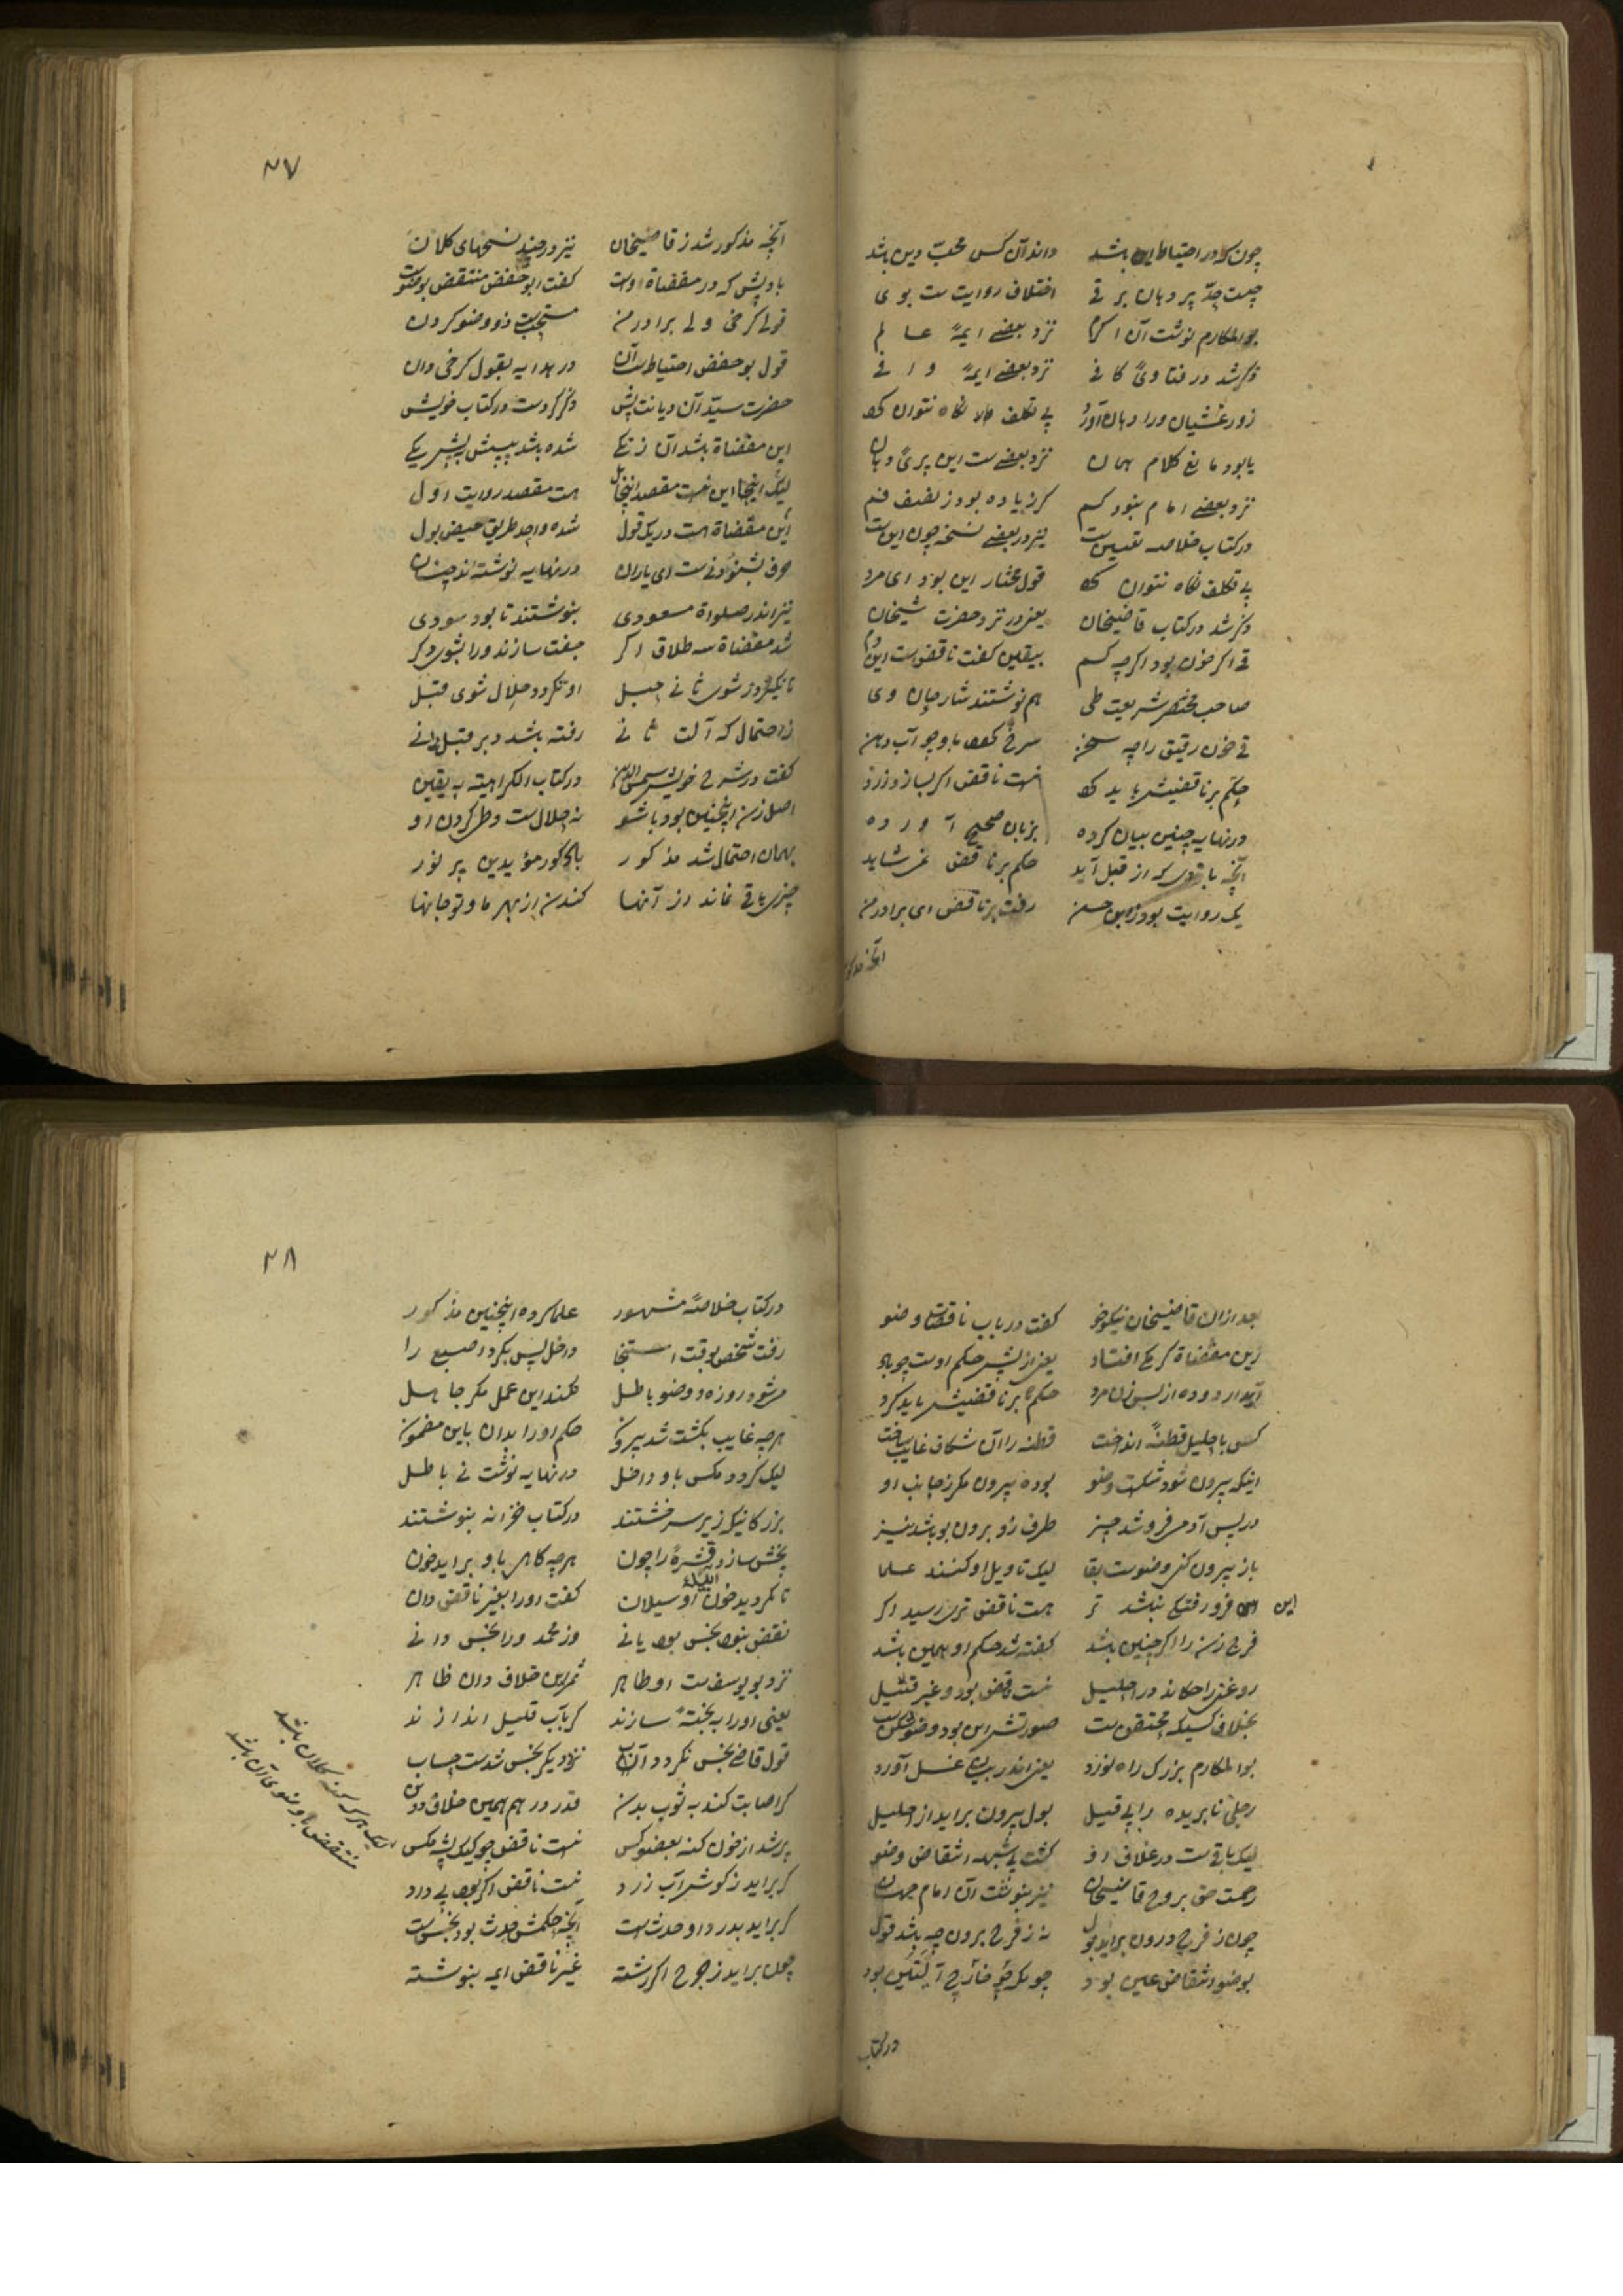 چون کرا در احتیاط این باشد داند آن کس محبّ دین باشد
چیست حدّ پر دهان بر قی اختلاف روایت ست بوی
بوالمکارم نوشت آن اکرم نزد بعضے ایمهٔ عالم
ذکر شد در فتاویٔ کافی نزد بعضے ایمهٔ وافی
بی تکلف نکاه نتوان کرد
یا بود مانع کلام همان نزد بعضے ست این پریٔ دهان
نزد بعضے امام نبود کم کر زیاده بود ز نصف فم
در کتاب خلاصه تعیین ست نیز در بعضے نسخه چون این ست
بی تکلف نکاه نتوان کرد قول مختار این بود ای مرد
ذکر شد در کتاب قاضیخان یعنی در نزد حضرت شیخان
قی اکر خون بود اکرچه کم بیقین کفت ناقض ست این دم
صاحب مختصر شریعت طی هم نوشتند شارحان وی
قی خون رقیق را چه سخن سرخ کردد باو چو آب دهن
حکم بر ناقضیش باید کرد نیست ناقض اکر بسازد زرد
در نهایه چنین بیان کرده بزبان صحیح آورده
آنچه باقی که از قبل آید حکم بر ناقض نمی شاید
یک روایت بود زابن حسن رفت بر ناقض ای برادر من
آنچه مذکور
۲۷
آنچه مذکور شد ز قاضیخان نیز در چند نسخهای کلان
باد پیش که در مفضاة اوست کفت ابو حفض منتقض بوضوست
قول کرخی ولی برادر من مستحب ست زو وضو کردن
قول بوحفض احتیاط ست آن در هدایه بقول کرخی دان
حضرت سیّد آن دیانت پیش ذکر کردست در کتاب خویش
این مفضاة باشد آن زنکے شده باشد پیش پیشر یکے
لیک اینجا این نیست مقصد اینجا هست مقصد روایت اول
این مفضاة هست در یک قول شده واحد طریق حیض بول
حرف بشنودنے ست ای یاران در نهایه نوشته اند چنان
نیز اندر صلواة مسعودی بنوشتند تا بود سودی
شد مفضاة سه طلاق اکر جفت سازند ورا بشوی دکر
تا نکیرد ز شوی ثانی حبل او نکردد حلال شوی قبل
ز احتمال که آلت ثانی رفته باشد دبر قبل دانی
کفت در شرح خویش شمس الدین در کتاب الکراهیته به یقین
اصل زن اینچنین بود با شو نه حلال ست وطی کردن او
بهمان احتمال شد مذکور
چیزی باقی نماند از آنها کندن از بهر ما و تو جانها
بعد از آن قاضیخان نیکو خو کفت در باب ناقضات وضو
زین مفضاة کرمکے افتاد یعنی از پیش حکم اوست چو باد
آید ار دوده از پس زن مرد حکم بر ناقضیش باید کرد
کسی باحلیل قطنهٔ انداخت قطنه را آن شکاف غایب ساخت
اینکه بیرون شود شکست وضو بوده بیرون مکر ز جانب او
در پس آدمی فرو شد چیز طرف زو برون بو باشد نیز
باز بیرون کنی وضوست بقا لیک تاویل او کنند علما
این فرو رفتکی نباشد تر هست ناقض تری رسید اکر
فرج زن را اکر چنین باشد کفته شد حکم او همین باشد
روغنی را چکاند در احلیل نیست ناقض بود وغیر قتیل
بخلاف کسیکه محتقن ست
بوالمکارم بزرک راه نورد یعنی اندر بیان غسل آورد
رجل نابریده بول بیرون براید از احلیل
لیک باقی ست در غلاف او کشت بی شبهه انتقاض وضو
رحمت حق بروح قاضیخان نیز بنوشت آن امام جهان
چون ز فرج درون براید بول نه ز فرج برون چه باشد قول
بوضو انتقاض عین بود
در کتاب
۲۸
در کتاب خلاصهٔ مشهور علما کرده اینچنین مذکور
رفت شخصی بوقت استنجا داخل پس بکرد اصبع را
میشود روزه و وضو باطل نکند این عمل مکر جاهل
هرچه غایب بکشت شد بیرون حکم او را بدان باین مضمون
لیک کردد مکس باو داخل در نهایه نوشت نے باطل
بزرکانیکه زیر سر خشتند در کتاب خزانه بنوشتند
پخش سازد قشرهٔ را چون هرچه کاهی باو براید خون
تا نکردید خون او سیلان کفت او را بغیر ناقض دان
نقض نبود نجس بود یا نے وز محمد ورا نجس دانے
نزد بویوسف ست او طاهر ثمر این خلاف دان ظاهر
یعنی او را به پختهٔ سازند کر بآب قلیل اندازند
قول قاضے نجس نکردد آن آب نزد دیکر نجس شدست حساب
کر اصابت کند به ثوب بدن قدر درهم همین خلاف دون
پر شد از خون کنه بعضو کس نیست ناقض چو کیک پشه مکس
کر براید ز کوش آب زرد نیست ناقض اکر بود بی درد
کر براید بدرد او حدث ست آنچه حکمش حدث بود نجس ست
چون براید ز جرح اکر رشته غیر ناقض ایمه بنوشته
لیک هر کر کنه کلان باشد
منتقض باو وضوی آن باشد